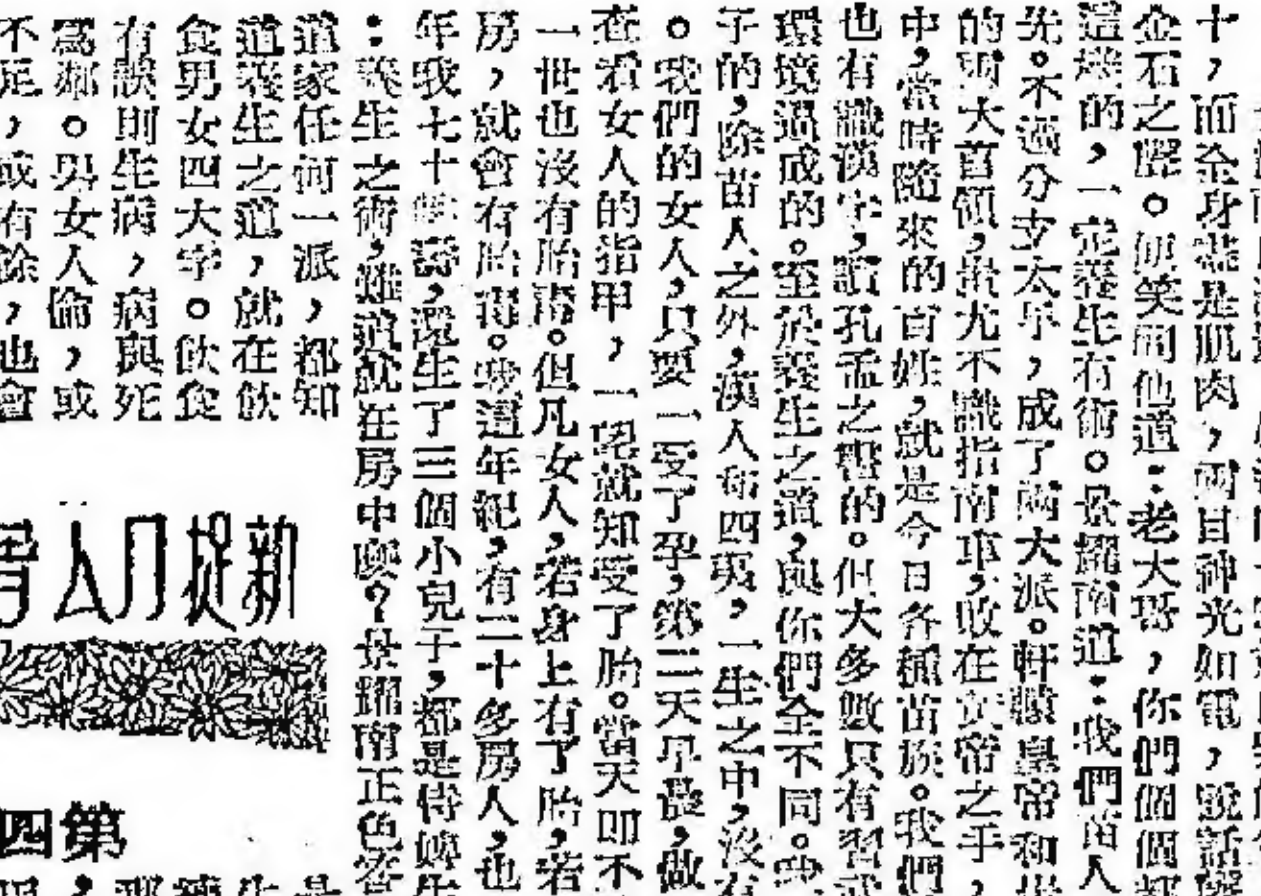 十，而全身盡是肌肉，兩目神光如電，說話
金石之聲。便笑問他道：老大哥，你們個個都
這樣的，一定養生有術。景耀南道：我們苗人
先。不過分支太早，成了兩大派。軒轅皇帝和
的兩大首領，蚩尤不識指南車，敗在黃帝之手，
中，當時隨來的百姓，就是今日各種苗族。我們
也有識漢字，讀孔孟之書的。但大多數只有習
環境逼成的。至於養生之道，與你們全不同。
子的，除苗人之外，漢人和四夷，一生之中，沒有
。我們的女人，只要一受了孕，第二天早晨，做
查看女人的指甲，一望就知受了胎。當天即不
一世也沒有胎毒。但凡女人，若身上有了胎，若
房，就會有胎毒。我這年紀，有二十多房人，也
年我七十歲壽，還生了三個小兒子，都是侍婢生
：養生之術，難道就在房中麼？景耀南正色答
道家任何一派，都知
道養生之道，就在飲
食男女四大字。飲食
有誤則生病，病與死
為鄰。男女人倫，或
不足，或有餘，也會
新捉刀人著
第四